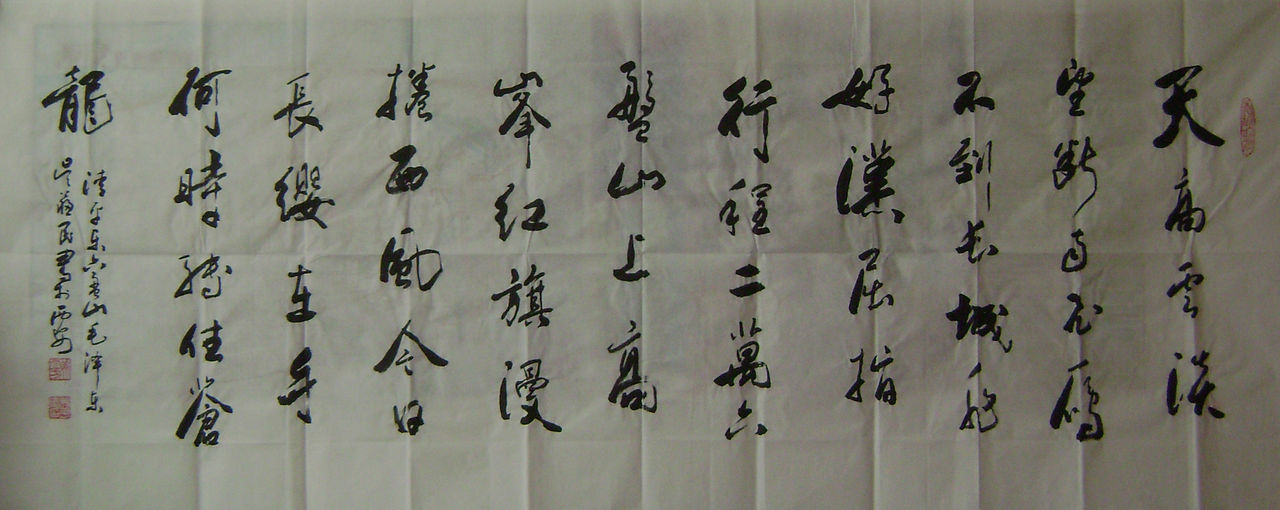 天高雲淡
望斷南飛雁
不到长城非
好漢屈指
行程二萬六
盤山上高
峯红旗漫
捲西風今日
長纓在手
何時縛住蒼
龍
清平乐六盘山毛泽东
民書於西安